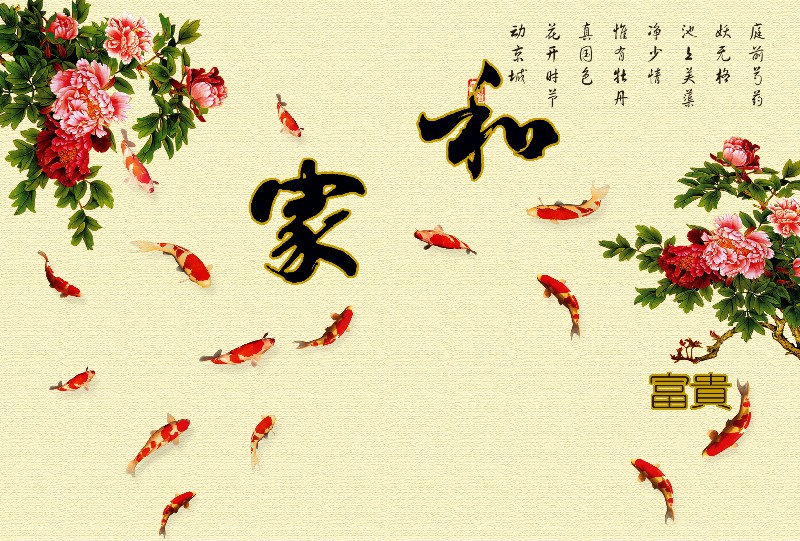 庭前芍药
妖无格
池上芙蕖
净少情
惟有牡丹
真国色
花开时节
动京城
家和
富貴